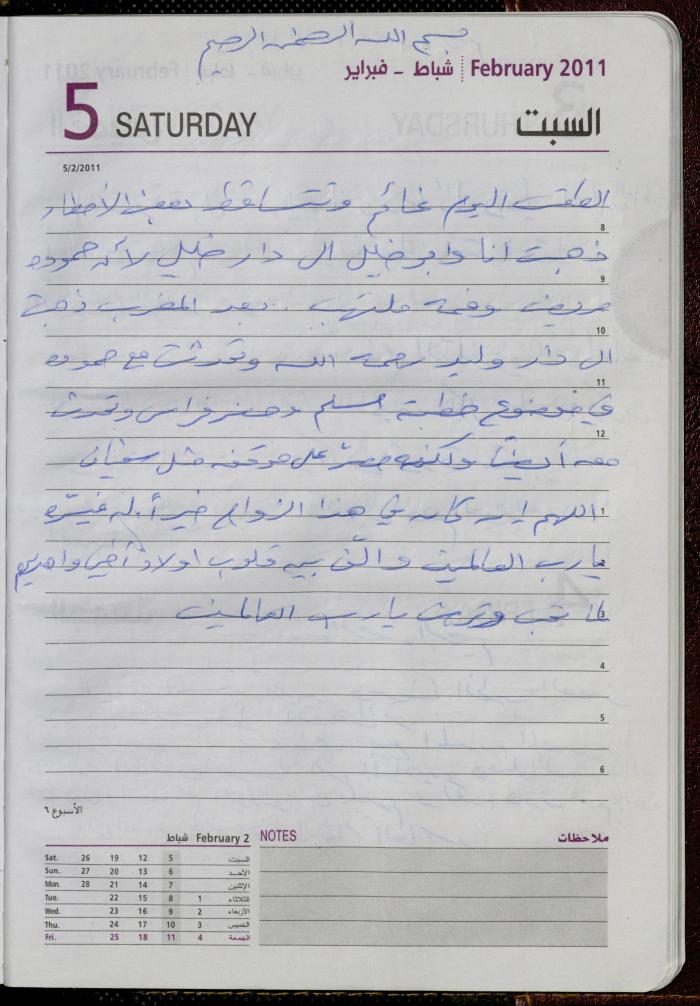 بسم الله الرحمن الرحيم
شباط - فبراير February 2011
5 SATURDAY السبت
5/2/2011
الطقس اليوم غائم وتتساقط بعض الأمطار
8
ذهبت أنا وابو خليل الى دار خليل لأن حموده
9
مريض وفمه ملتهب . بعد المغرب ذهبت
10
الى دار وليد رحمه الله وتحدثت مع حموده
11
في موضوع خطبة مسلم وحضر فراس وتحدث
12
معه أيضاً ولكنه مصرّ على موقفه مثل سفيان
1
اللهم ان كان في هذا الزواج خيراً له فيسّره
2
يارب العالمين والّف بين قلوب اولاد أخي واهديهم
3
لما تحب وترضى يارب العالمين
4
5
6
الأسبوع ٦
شباط February 2
Sat. 26 19 12 5 السبت
Sun. 27 20 13 6 الأحد
Mon. 28 21 14 7 الإثنين
Tue. 22 15 8 1 الثلاثاء
Wed. 23 16 9 2 الأربعاء
Thu. 24 17 10 3 الخميس
Fri. 25 18 11 4 الجمعة
NOTES ملاحظات